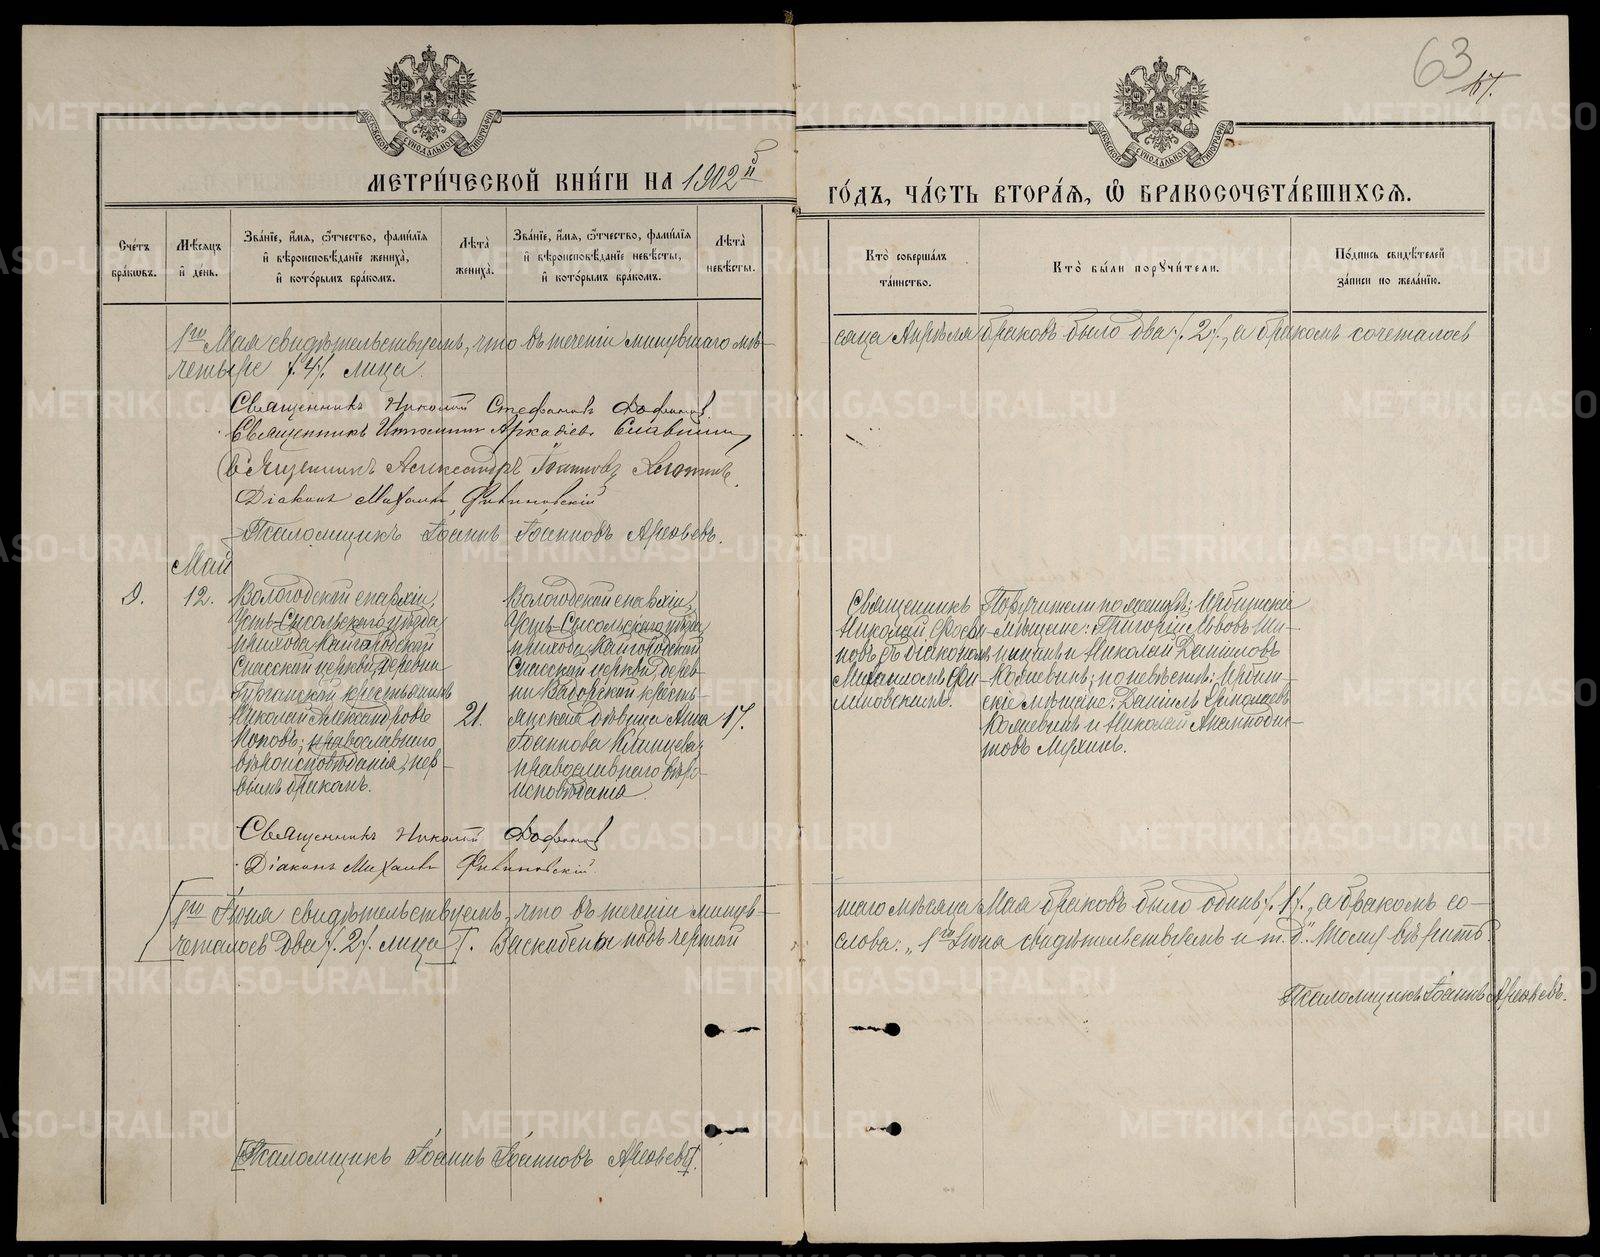 63
167.
МОСКОВСКОЙ СѴНОДАЛЬНОЙ ТИПОГРАФІИ
МОСКОВСКОЙ СѴНОДАЛЬНОЙ ТИПОГРАФІИ
МЕТРИ́ЧЕСКОЙ КНИ́ГИ НА 1902й
ГО́ДЪ, ЧА́СТЬ ВТОРА́Я, Ѽ БРАКОСОЧЕТА́ВШИХСЯ.
Сче́тъ бра́ковъ.
Мѣ́сяцъ и҆ де́нь.
Зва́нїе, и҆́мя, ѻ҆́тчество, фами́лїя и҆ вѣроисповѣ́данїе жениха̀, и҆ кото́рымъ бра́комъ.
Лѣ́та жениха̀.
Зва́нїе, и҆́мя, ѻ҆́тчество, фами́лїя и҆ вѣроисповѣ́данїе невѣ́сты, и҆ кото́рымъ бра́комъ.
Лѣ́та невѣ́сты.
Кто̀ соверша́лъ та́инство.
Кто̀ бы́ли порꙋчи́тели.
По́дпись свидѣ́телей за́писи по жела́нїю.
1го Мая свидѣтельствуемъ, что въ теченіи минувшаго мѣ-
сяца Апрѣля браковъ было два /.2/., а бракомъ сочеталось
четыре /.4/. лица.
Священникъ Николай Стефановъ
Священникъ Аркадіевъ Славнинъ
Священникъ Александръ Іоанновъ
Діаконъ Михаилъ Филиновскій
Псаломщикъ Іоаннъ Іоанновъ Арефьевъ.
Май
9.
12.
Вологодской епархіи,
Усть-Сысольскаго уѣзда
прихода Кайгородской
Спасской церкви, деревни
Курганской крестьянинъ
Николай Александровъ
Поповъ; православнаго
вѣроисповѣданія, пер-
вымъ бракомъ.
21.
Вологодской епархіи,
Усть-Сысольскаго уѣзда
прихода Кайгородской
Спасской церкви, дерев-
ни крестъ-
янская дѣвица Анна
Іоаннова
православнаго вѣро-
исповѣданія.
17.
Священникъ
Николай
новъ съ діакономъ
Михаиломъ Фи-
линовскимъ.
Поручители по женихѣ: Ирбитскіе
мѣщане: Григорій Львовъ Ши-
и Николай Даниловъ
; по невѣстѣ: Ирбит-
скіе мѣщане: Даніилъ Ермолаевъ
и Николай Анемподис-
товъ
Священникъ Николай
Діаконъ Михаилъ Филиновскій
1го Іюня свидѣтельствуемъ, что въ теченіи минув-
шаго мѣсяца Мая браковъ было одинъ /.1/., а бракомъ со-
четалось два /.2/. лица. Выскоблены подъ чертой
слова: „1го Іюня свидѣтельствуемъ и т. д." Тому вѣрить.
Псаломщикъ Іоаннъ Арефьевъ.
Псаломщикъ Іоаннъ Іоанновъ Арефьевъ.
METRIKI.GASO-URAL.RU